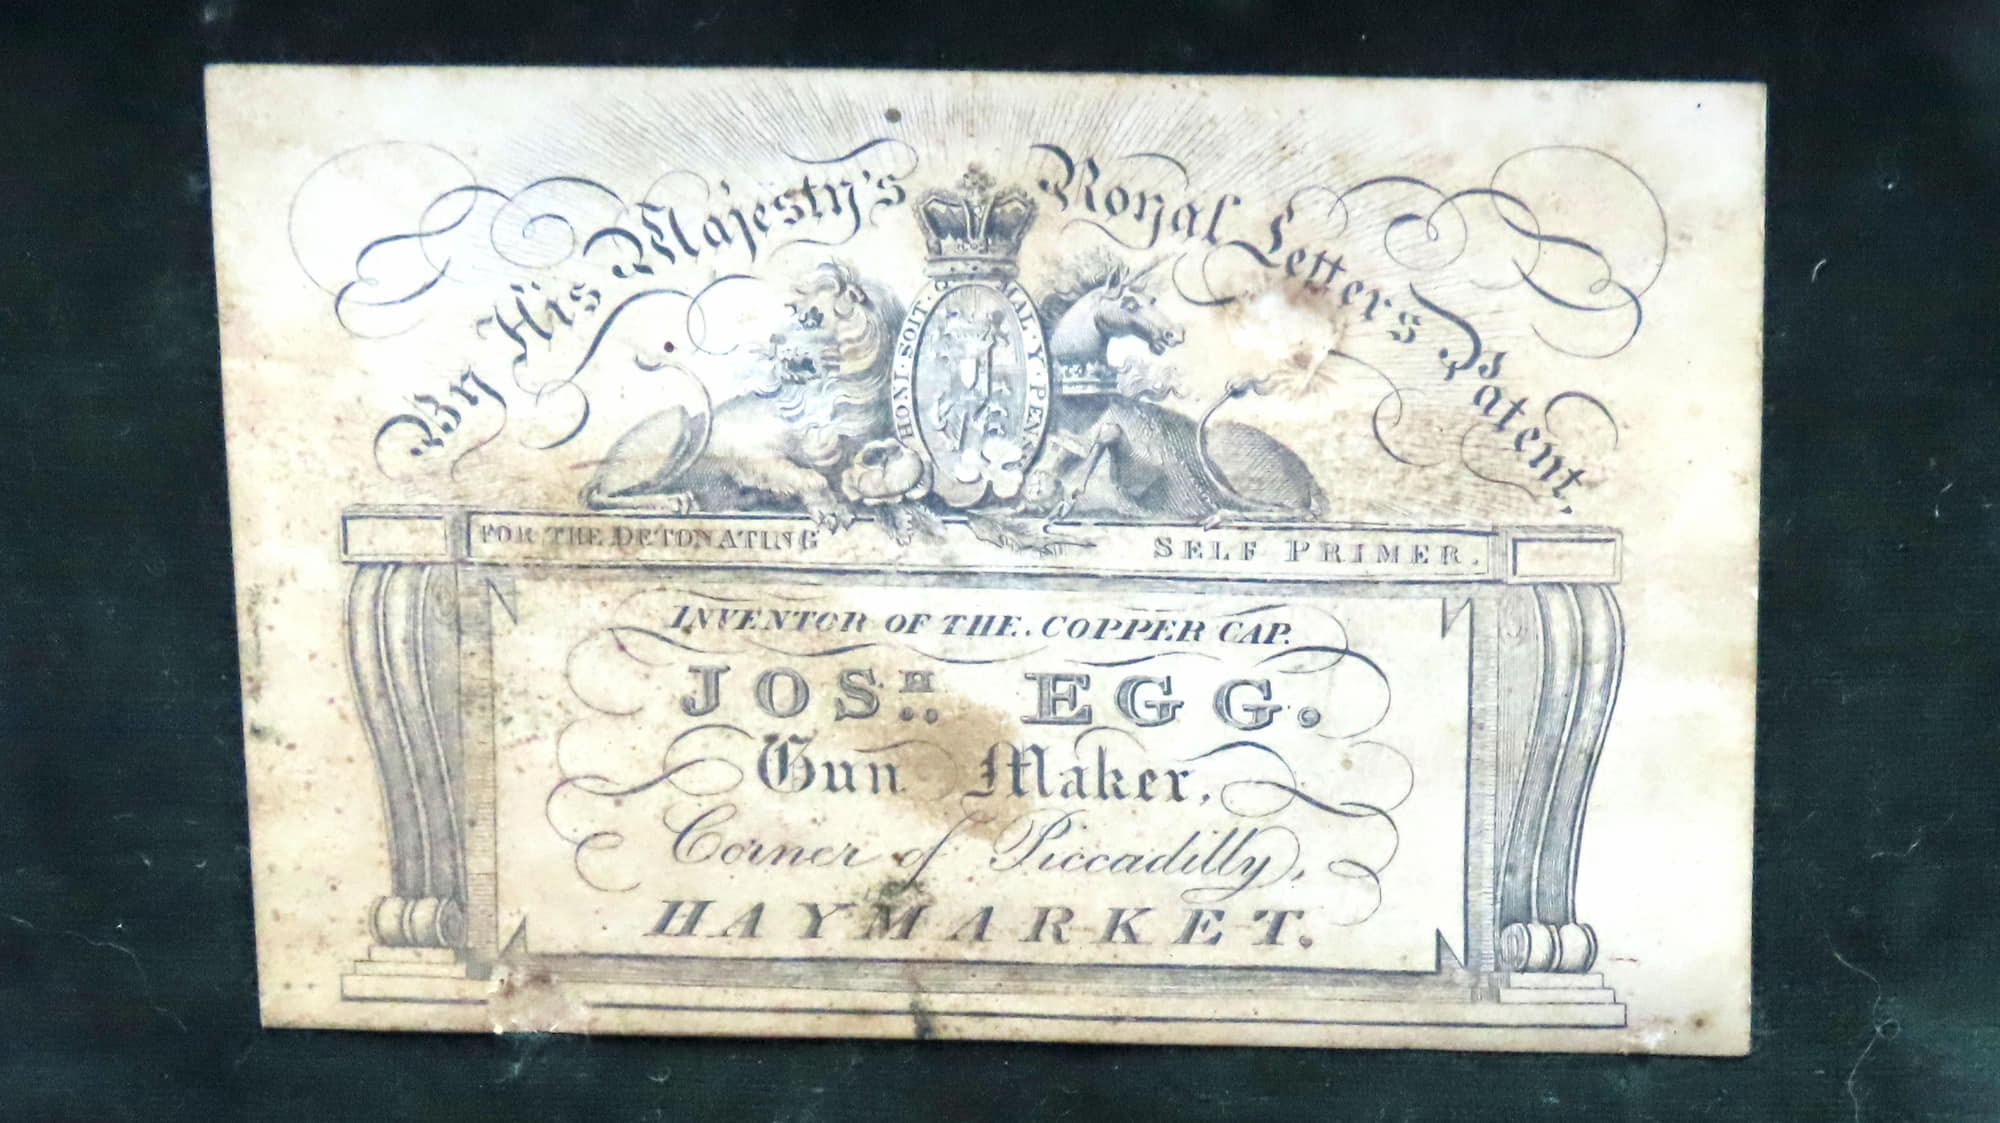 By His Majesty's Royal Letters Patent,
HONI · SOIT · Q MAL · Y · PENS
FOR THE DETONATING SELF PRIMER.
INVENTOR OF THE COPPER CAP.
JOSH. EGG.
Gun Maker,
Corner of Piccadilly,
HAYMARKET.